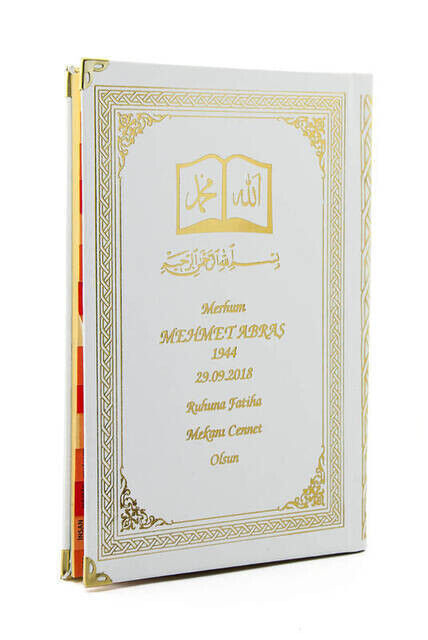 محمد الله
بسم الله الرحمن الرحيم
Merhum
MEHMET ABRAŞ
1944
29.09.2018
Ruhuna Fatiha
Mekanı Cennet
Olsun
İNSAN